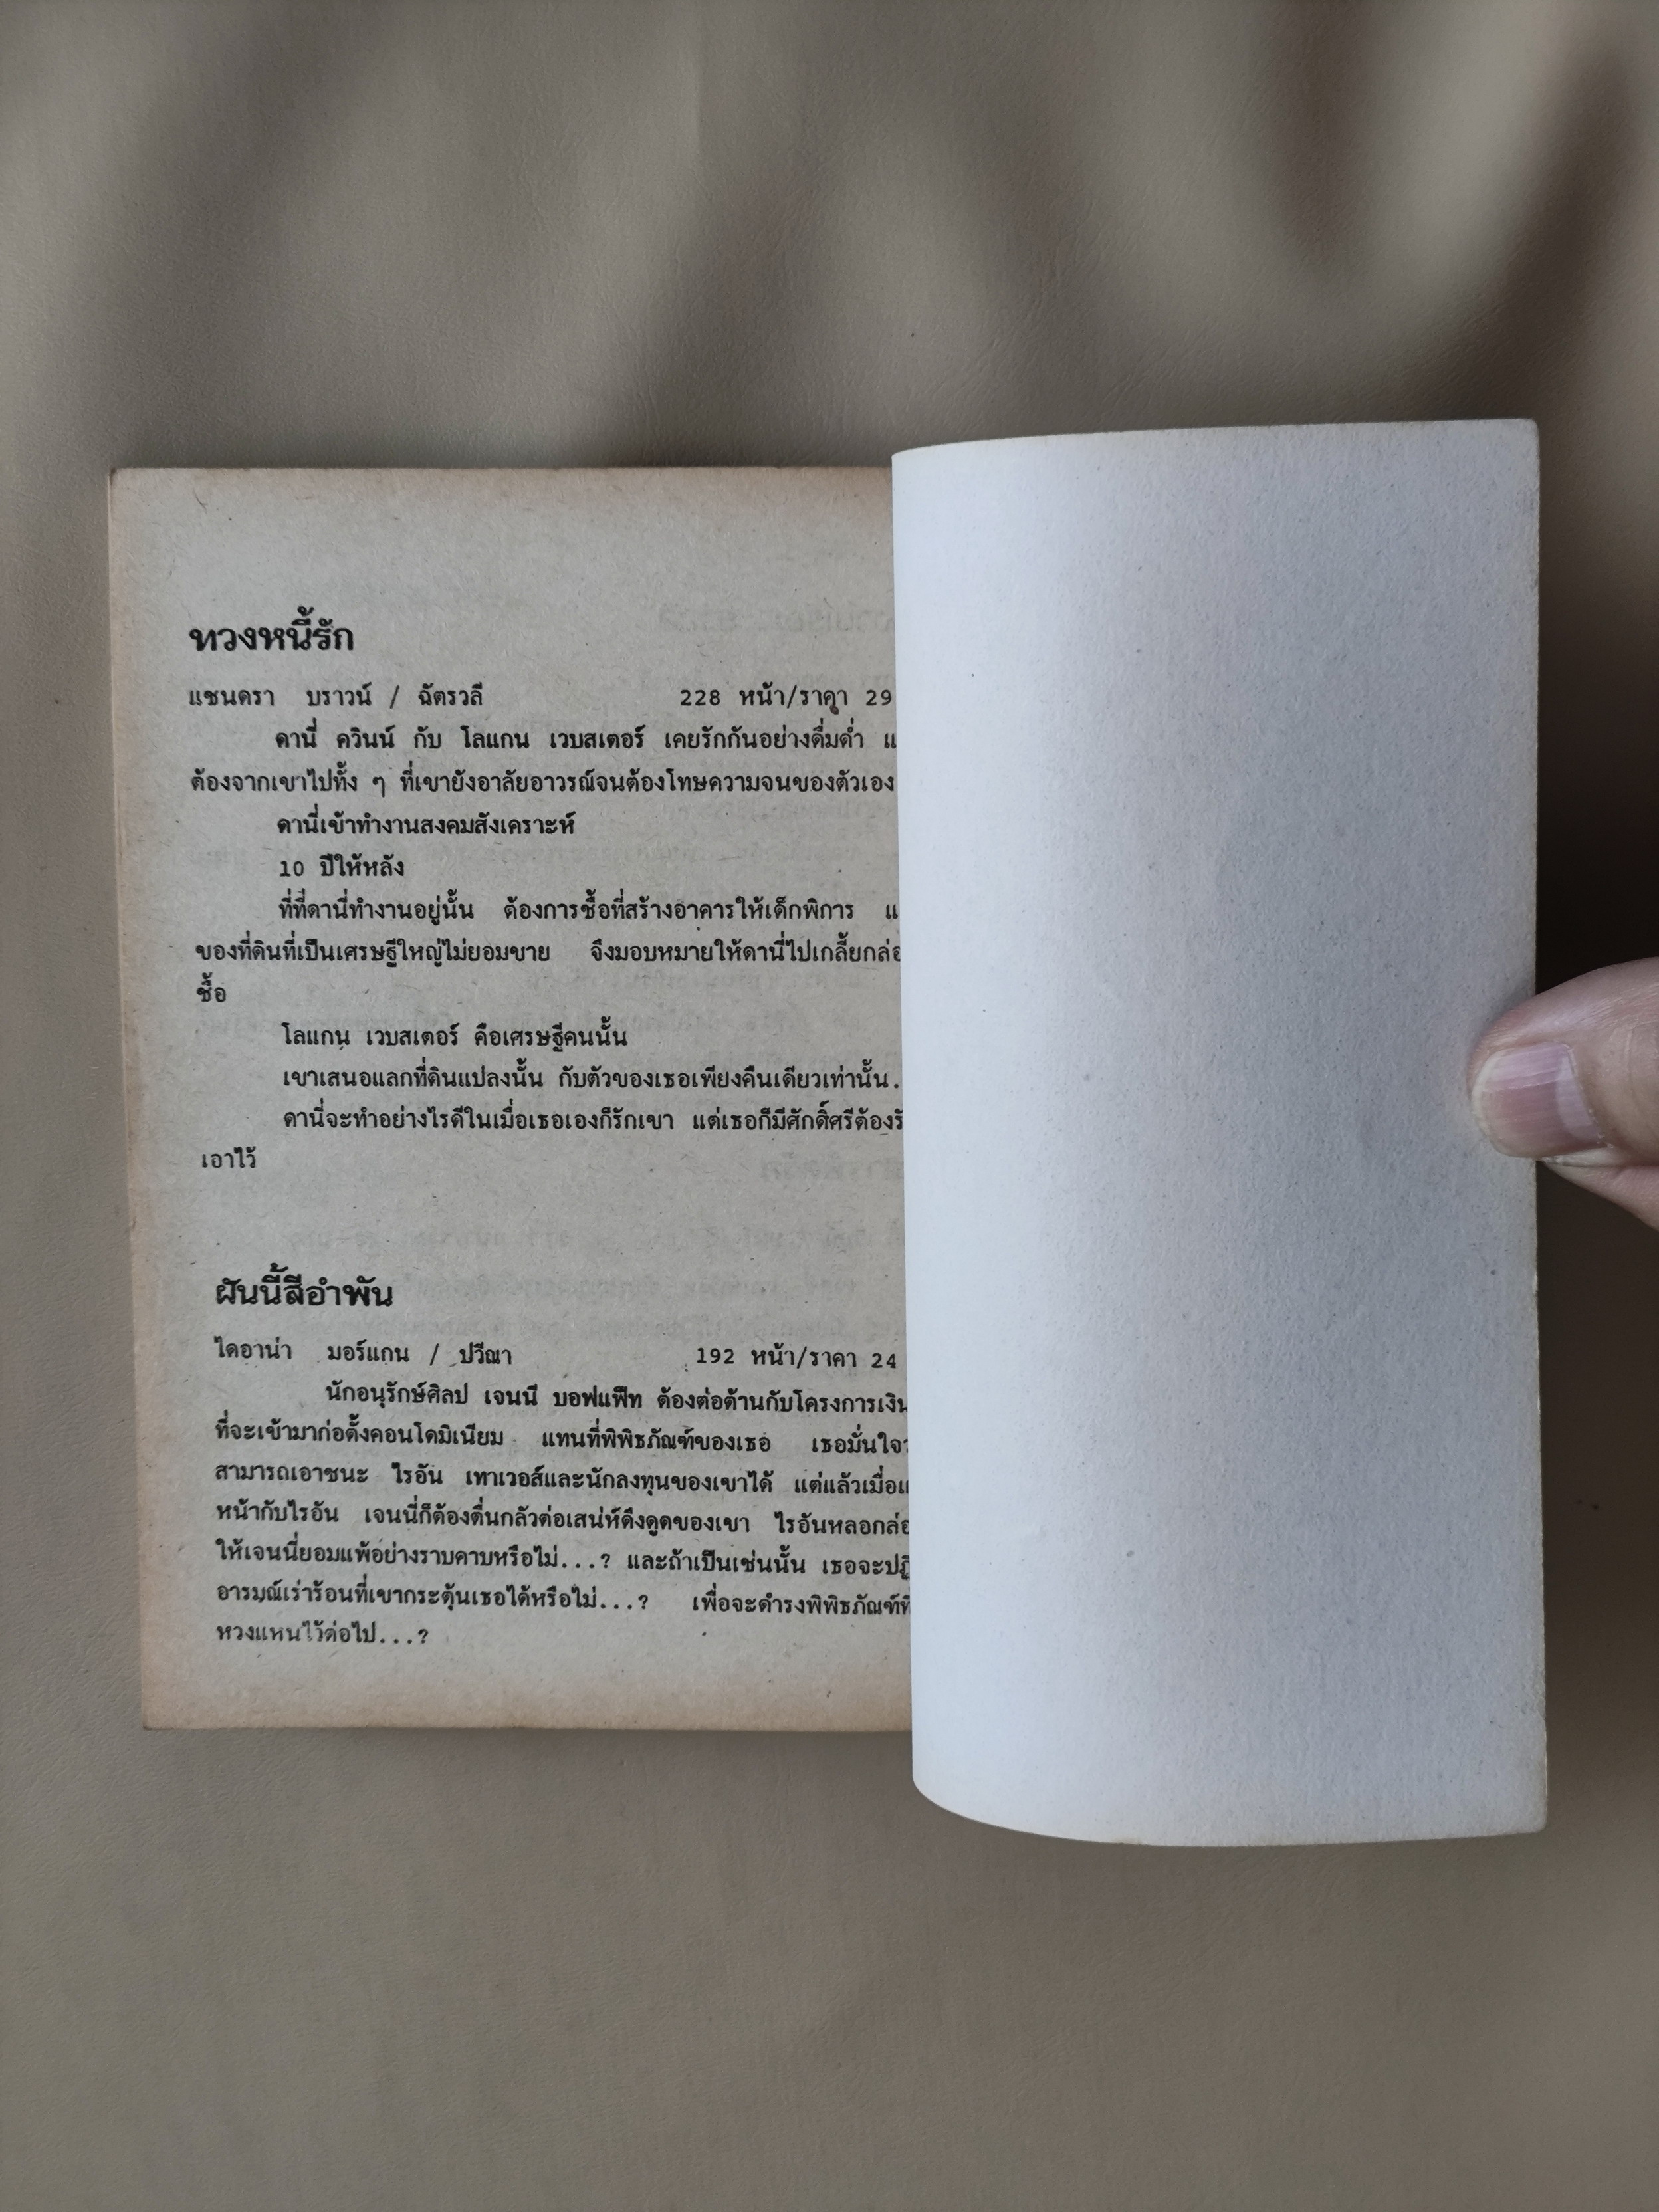 ทวงหนี้รัก
แซนดรา บราวน์ / ฉัตรวลี 228 หน้า/ราคา 29
ดานี่ ควินน์ กับ โลแกน เวบสเตอร์ เคยรักกันอย่างดื่มด่ำ
ต้องจากเขาไปทั้ง ๆ ที่เขายังอาลัยอาวรณ์จนต้องโทษความจนของตัวเอง
ดานี่เข้าทำงานสงคมสังเคราะห์
10 ปีให้หลัง
ที่ที่ดานี่ทำงานอยู่นั้น ต้องการซื้อที่สร้างอาคารให้เด็กพิการ
ของที่ดินที่เป็นเศรษฐีใหญ่ไม่ยอมขาย จึงมอบหมายให้ดานี่ไปเกลี้ยกล่อ
ซื้อ
โลแกน เวบสเตอร์ คือเศรษฐีคนนั้น
เขาเสนอแลกที่ดินแปลงนั้น กับตัวของเธอเพียงคืนเดียวเท่านั้น.
ดานี่จะทำอย่างไรดีในเมื่อเธอเองก็รักเขา แต่เธอก็มีศักดิ์ศรีต้อง
เอาไว้
ฝันนี้สีอำพัน
ไดอาน่า มอร์แกน / ปวีณา 192 หน้า/ราคา 24
นักอนุรักษ์ศิลป เจนนี บอฟแฟ็ท ต้องต่อต้านกับโครงการเงิน
ที่จะเข้ามาก่อตั้งคอนโดมิเนียม แทนที่พิพิธภัณฑ์ของเธอ เธอมั่นใจ
สามารถเอาชนะ ไรอัน เทาเวอส์และนักลงทุนของเขาได้ แต่แล้วเมื่อ
หน้ากับไรอัน เจนนี่ก็ต้องตื่นกลัวต่อเสน่ห์ดึงดูดของเขา ไรอันหลอกล่อ
ให้เจนนี่ยอมแพ้อย่างราบคาบหรือไม่...? และถ้าเป็นเช่นนั้น เธอจะ
อารมณ์เร่าร้อนที่เขากระตุ้นเธอได้หรือไม่...? เพื่อจะดำรงพิพิธภัณฑ์ที่
หวงแหนไว้ต่อไป...?